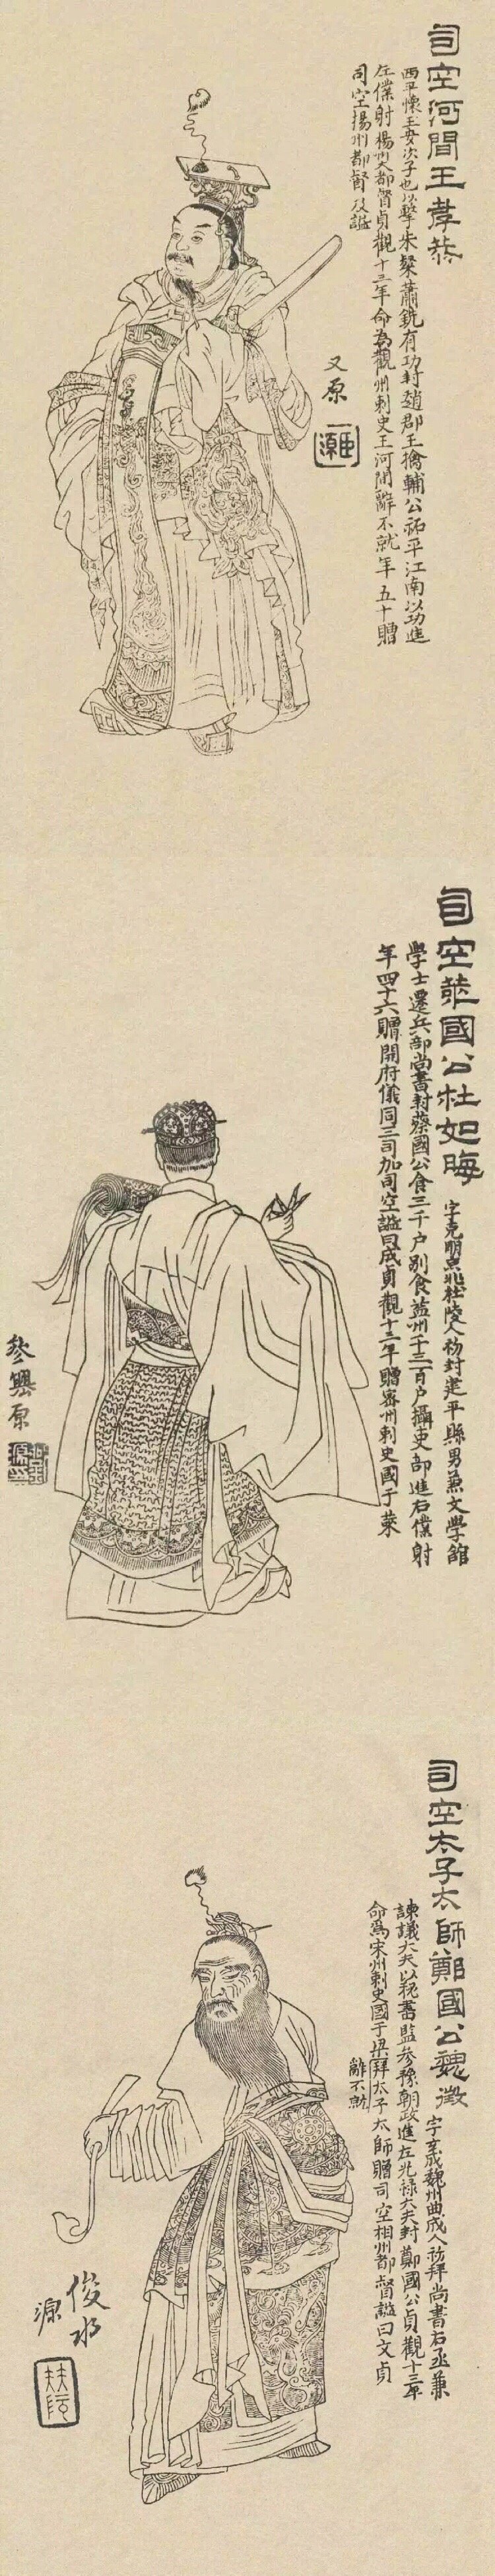 司空河間王孝恭
西平懷王安次子也以擊朱粲蕭銑有功封趙郡王擒輔公祏平江南以功進
左僕射揚州大都督貞觀十三年命為觀州刺史王河間辭不就年五十贈
司空揚州都督及謚
又原
司空萊國公杜如晦
字克明京兆杜陵人初封建平縣男兼文學館
學士遷兵部尚書封蔡國公食三千户別食益州千三百户攝吏部進右僕射
年四十六贈開府儀同三司加司空謚曰成貞觀十三年贈密州刺史國于萊
參興原
司空太子太師鄭國公魏徵
字玄成魏州曲成人初拜尚書右丞兼
諫議大夫以秘書監參豫朝政進左光禄大夫封鄭國公貞觀十三年
命爲宋州刺史國于梁拜太子太師贈司空相州都督謚曰文貞
辭不就
俊水
源